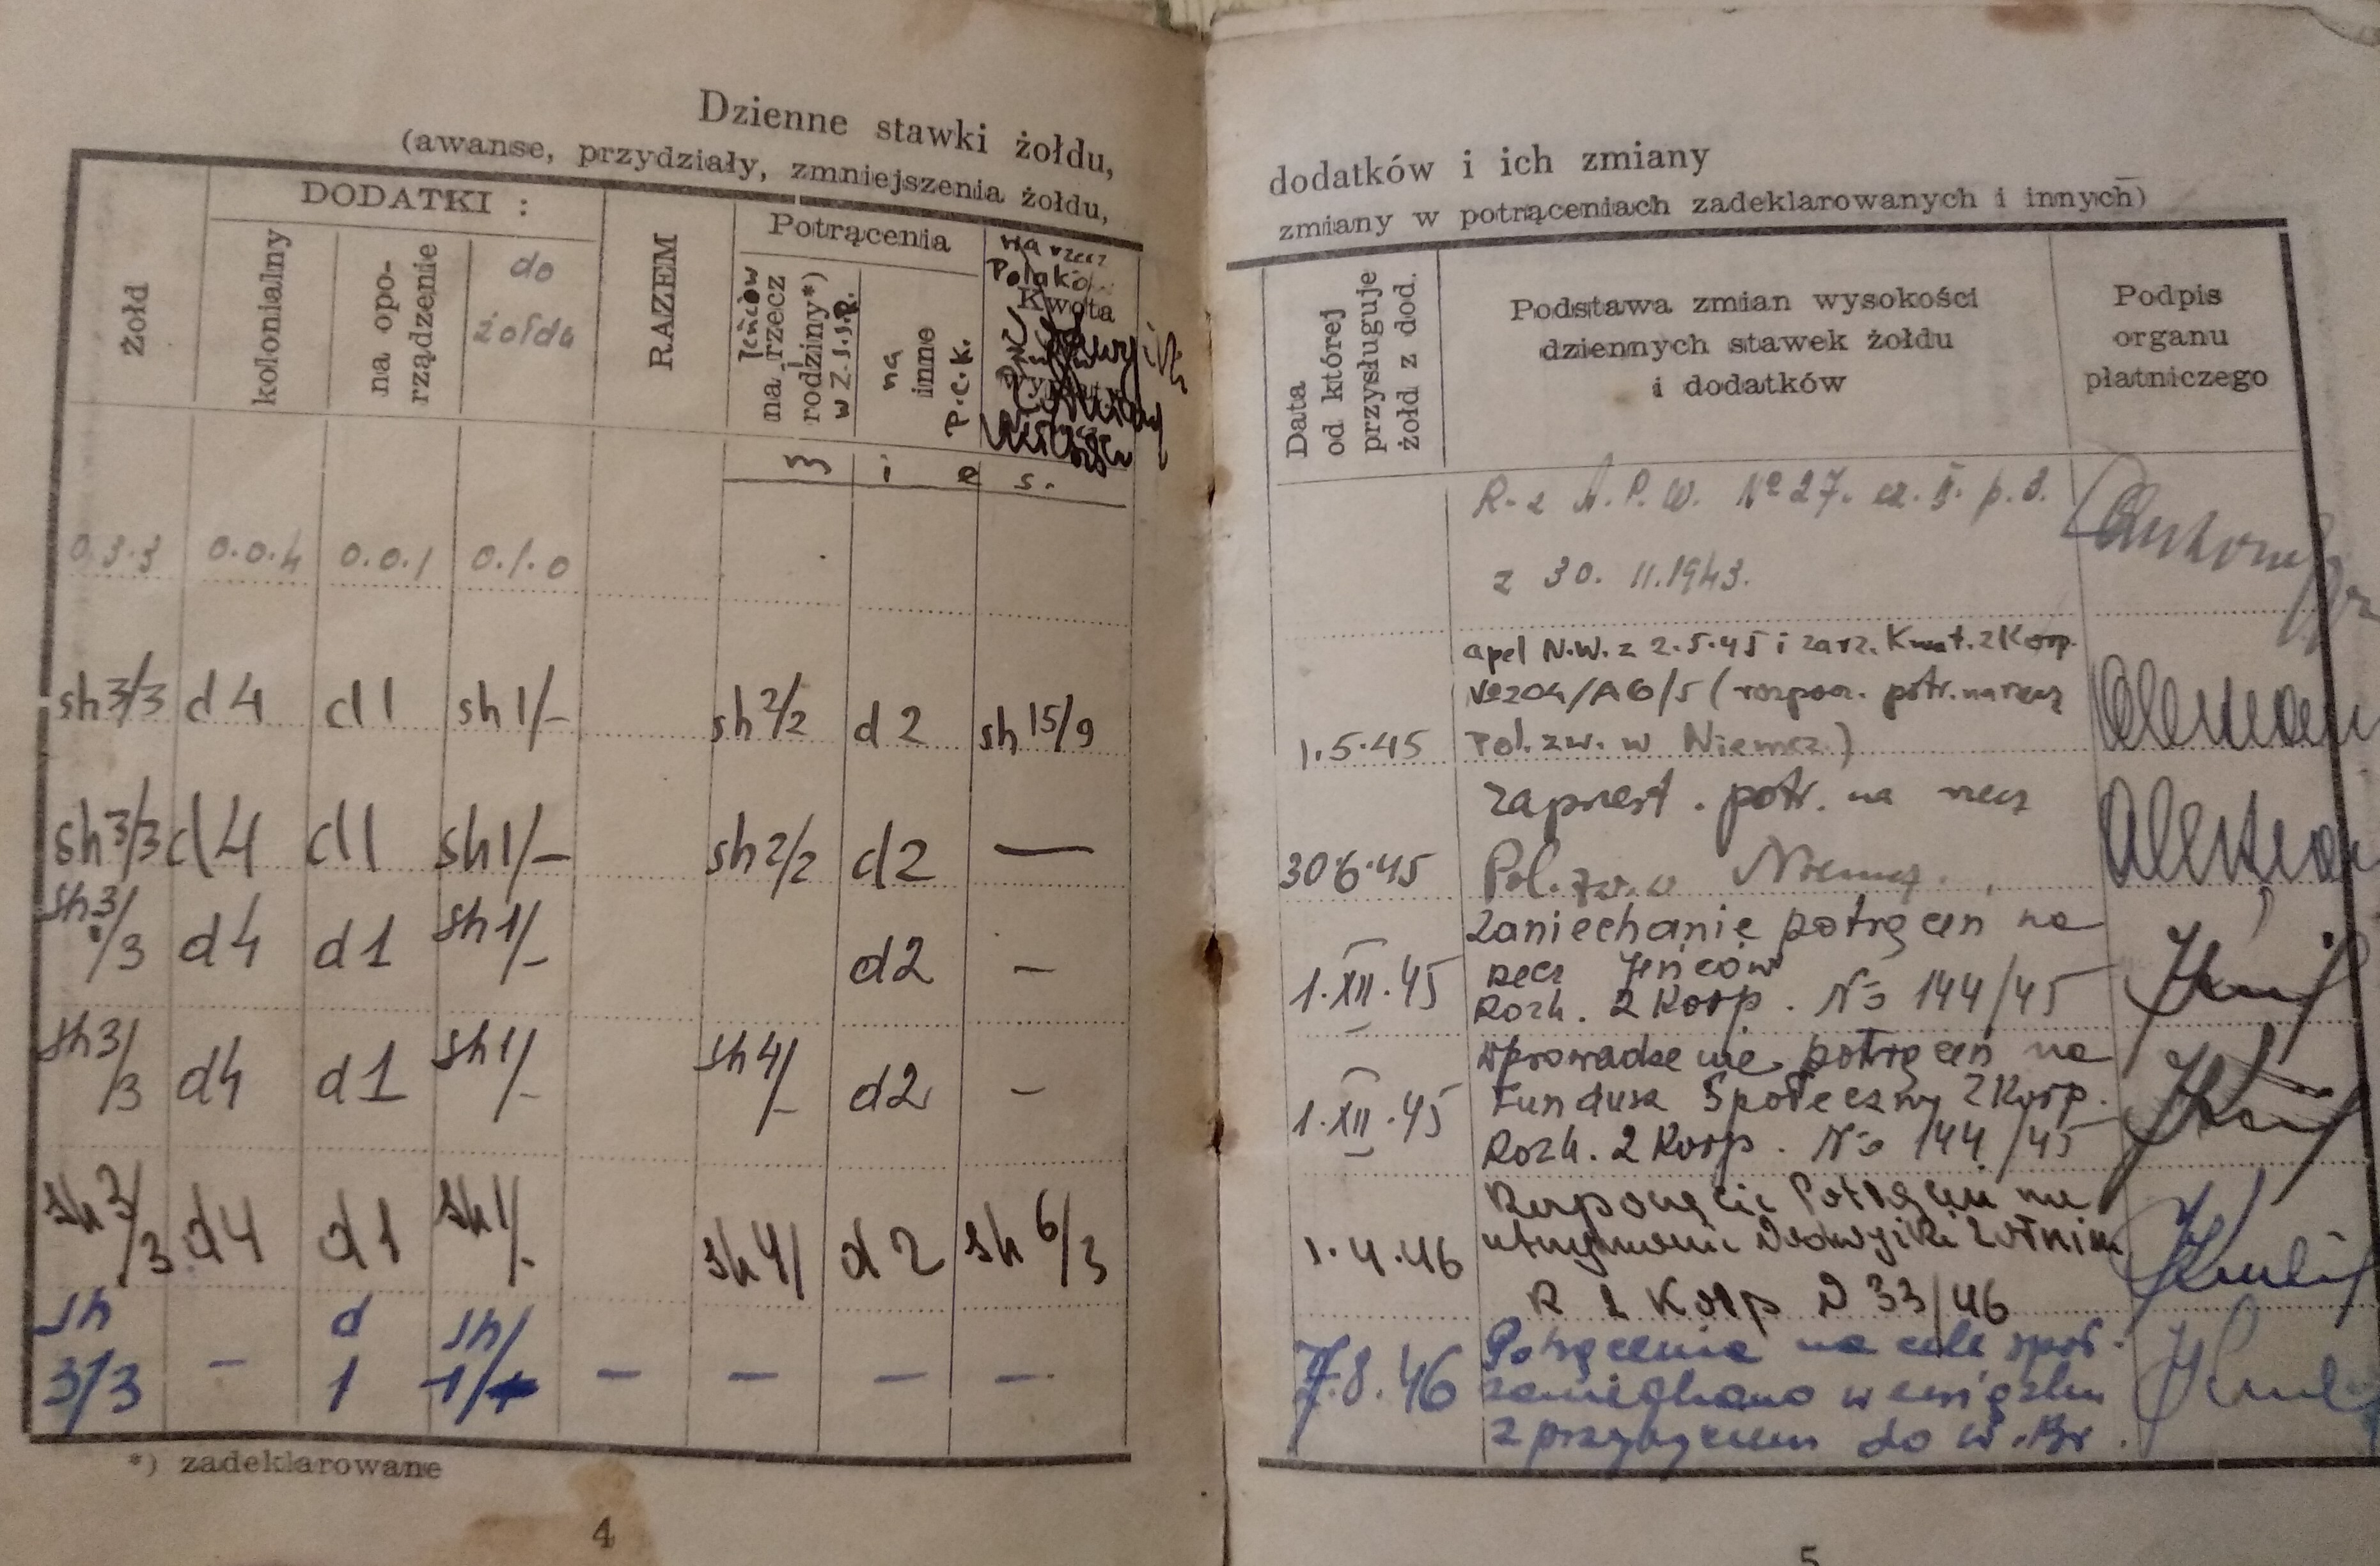 Dzienne stawki żołdu,
(awanse, przydziały, zmniejszenia żołdu,
Żołd
DODATKI :
kolonialny
na opo-
rządzenie
do
żołdu
RAZEM
Potrącenia
Jeńców
na rzecz
rodziny*)
w Z.J.J.P.
na
inne
P.C.K.
na rzecz
Polaków
Kwota
m i e s.
0.3.3 0.0.4 0.0.1 0.1.0
sh 3/3 d 4 d 1 sh 1/- sh 2/2 d 2 sh 15/9
sh 3/3 d 4 d 1 sh 1/- sh 2/2 d 2 —
sh 3/3 d 4 d 1 sh 1/- d 2 -
sh 3/3 d 4 d 1 sh 1/- sh 4/- d 2 -
sh 3/3 d 4 d 1 sh 1/- sh 4/ d 2 sh 6/3
sh d sh/
3/3 - 1 1/ - - - -
*) zadeklarowane
4
dodatków i ich zmiany
zmiany w potrąceniach zadeklarowanych i innych)
Data
od której
przysługuje
żołd z dod.
Podstawa zmian wysokości
dziennych stawek żołdu
i dodatków
Podpis
organu
płatniczego
R-z A.P.W. No 27. cz. II. p. 3.
z 30. 11.1943.
apel N.W. z 2.5.45 i zarz. Kwat. 2 Korp.
No 204/AG/5 (rozpocz. potr. na rzecz
1.5.45 Pol. zw. w Niemcz.)
zaprzest. potr. na rzecz
30.6.45 Pol. zw. w Niemcz.
Zaniechanie potrąceń na
1.XII.45 rzecz Jeńców
Rozk. 2 Korp. No 144/45
Wprowadzenie potrąceń na
1.XII.45 Fundusz Społeczny 2 Korp.
Rozk. 2 Korp. No 144/45
Rozpoczęcie Potrąceń na
1.4.46 utrzymanie
R 2 Korp N 33/46
Potrącenia na cele społ.
7.8.46 zaniechano w związku
z przybyciem do W.Br.
5